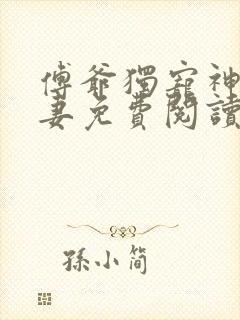 傅爺獨寵神
妻免費閱讀
孫小簡